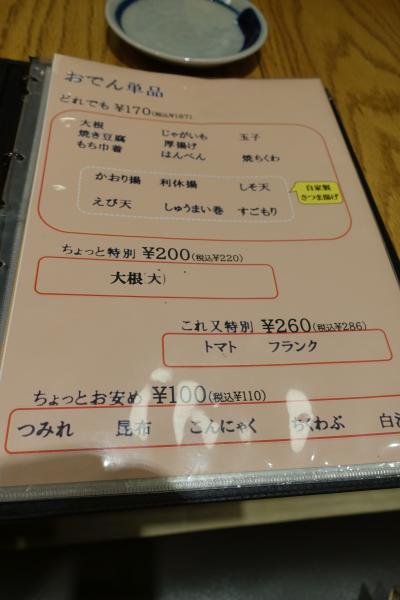 おでん単品
どれでも ¥170(税込¥187)
大根
焼き豆腐 じゃがいも 玉子
もち巾着 厚揚げ
はんぺん 焼ちくわ
かおり揚 利休揚 しそ天
自家製
さつま揚げ
えび天 しゅうまい巻 すごもり
ちょっと特別 ¥200(税込¥220)
大根(大)
これ又特別 ¥260(税込¥286)
トマト フランク
ちょっとお安め ¥100(税込¥110)
つみれ 昆布 こんにゃく ちくわぶ 白